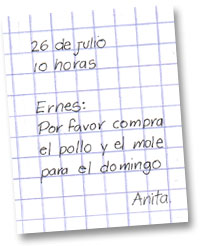 26 de julio
10 horas
Ernes:
Por favor compra
el pollo y el mole
para el domingo
Anita.